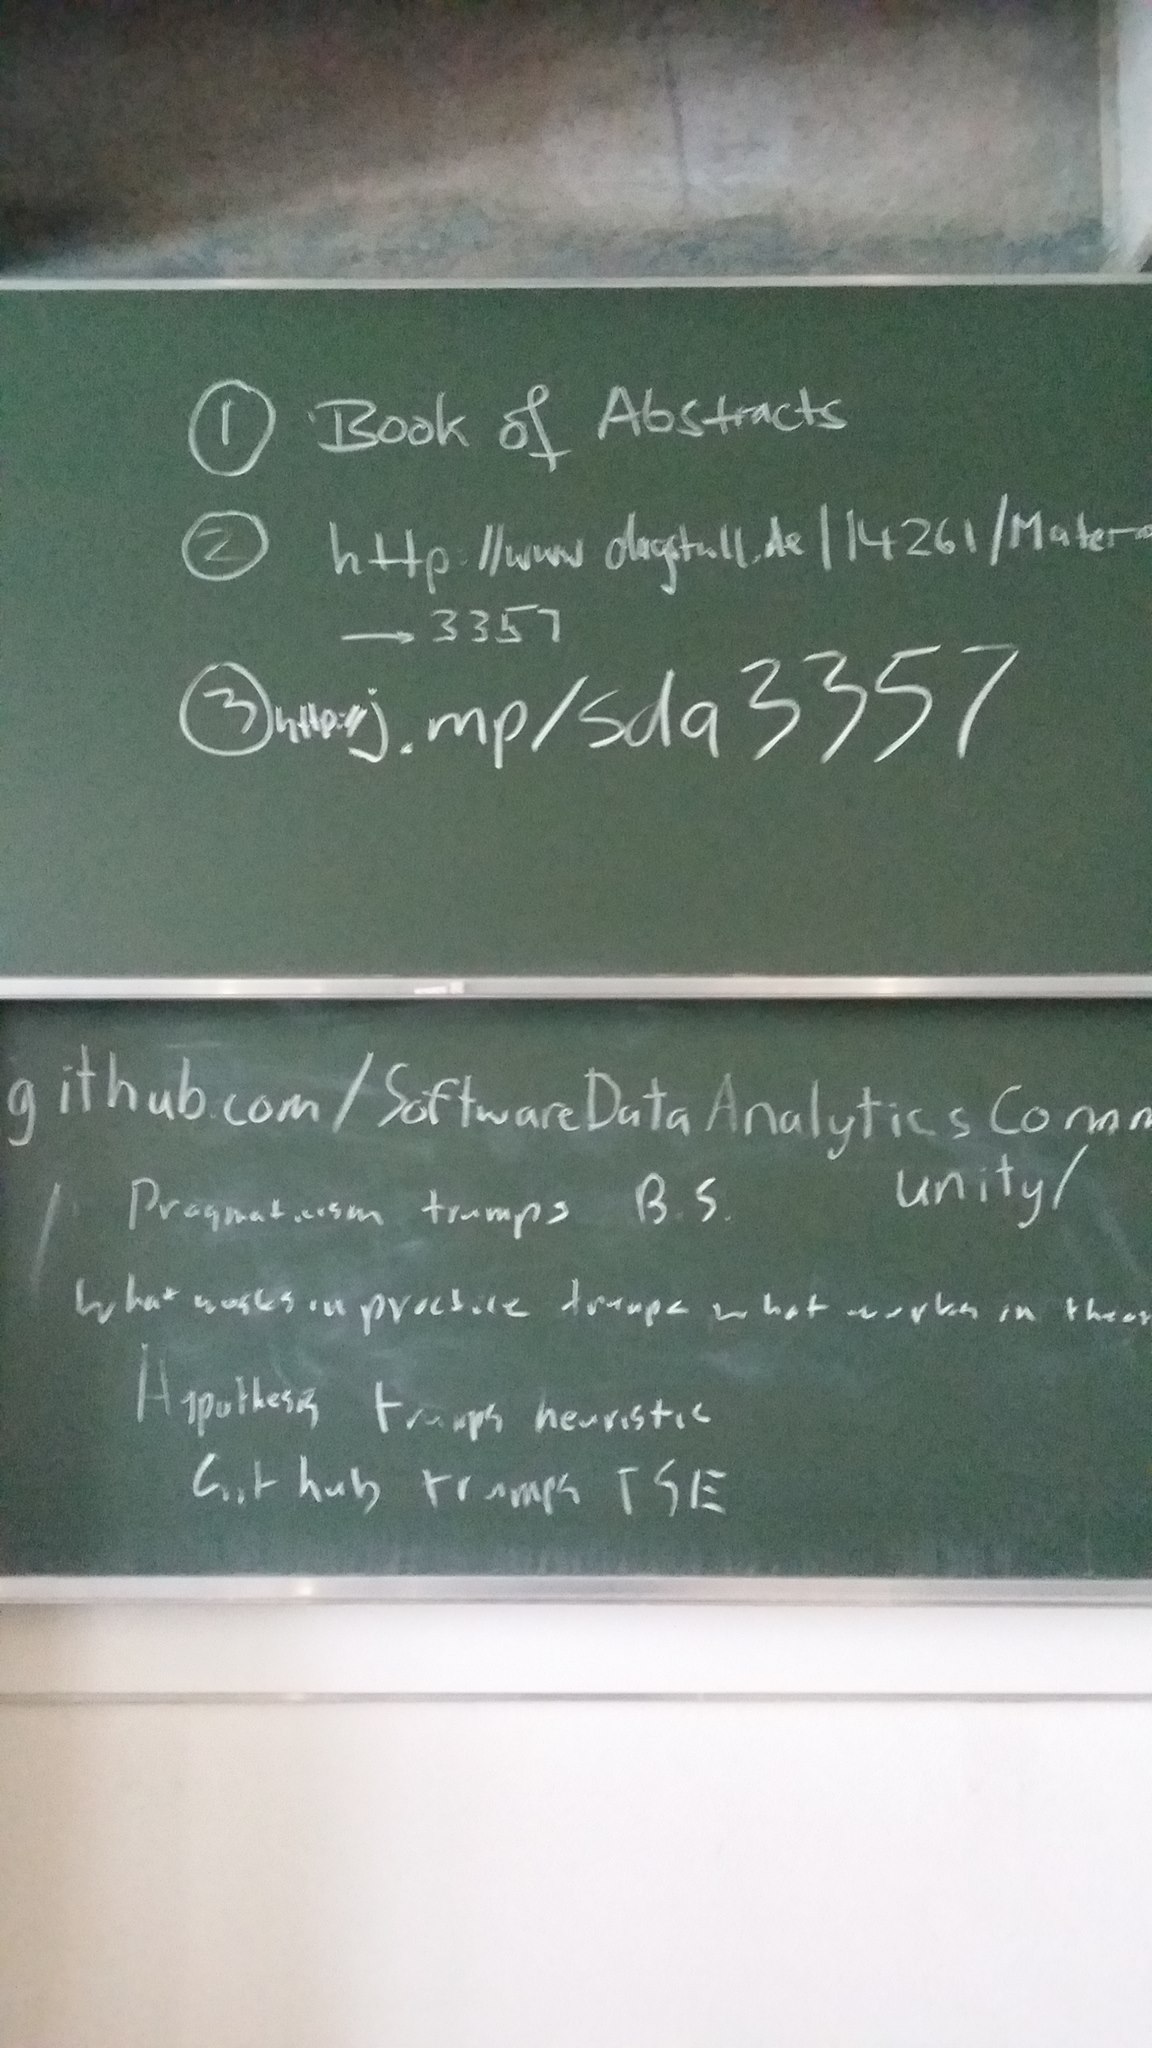 ① Book of Abstracts
② http://www.dagstuhl.de/14261/Mater
→ 3357
③ http://j.mp/sda3357
github.com/SoftwareDataAnalyticsComm
unity/
Pragmaticism trumps B.S.
What works in practice trumps what works in theor
Hypothesis trumps heuristic
Github trumps TSE